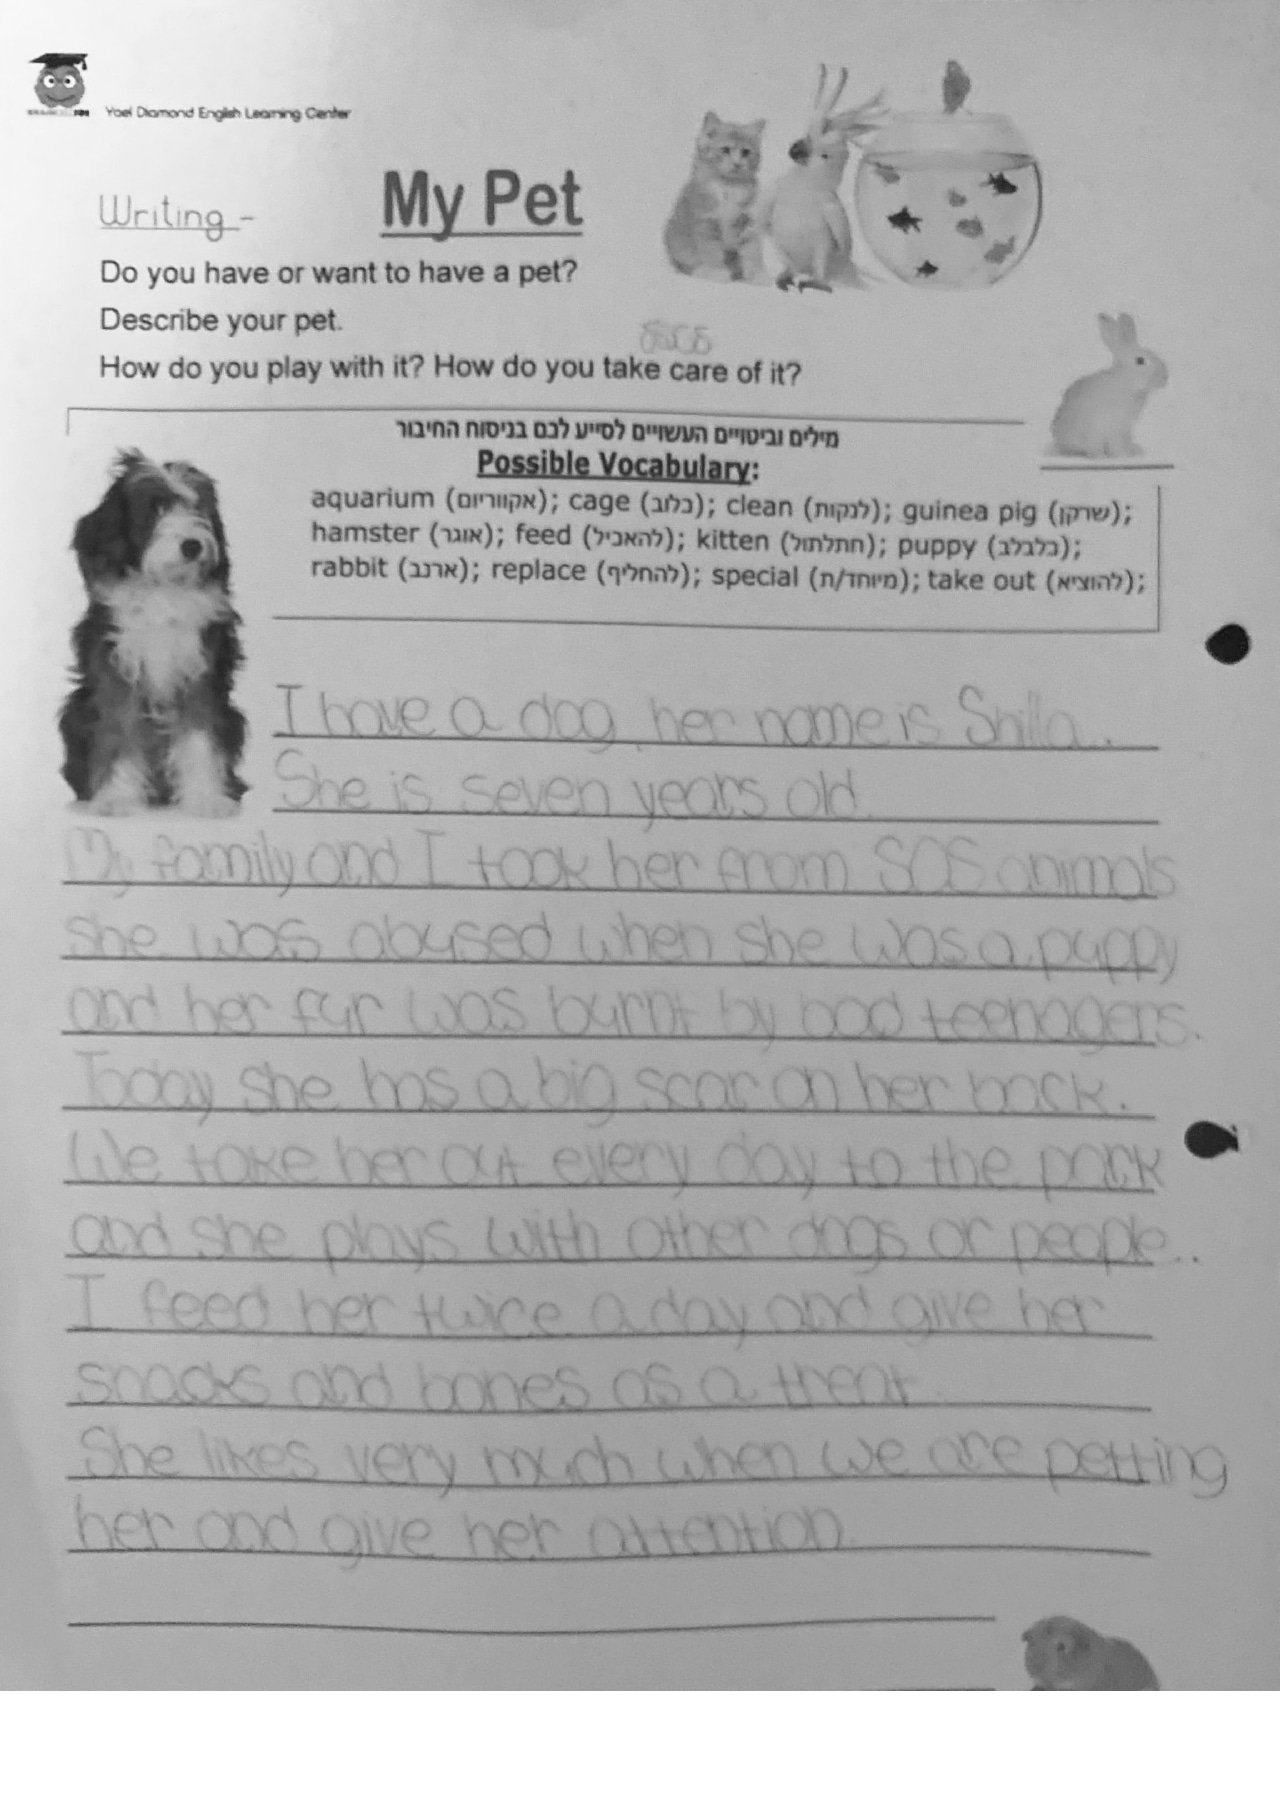 Yael Diamond English Learning Center
Writing -
My Pet
Do you have or want to have a pet?
Describe your pet.
How do you play with it? How do you take care of it?
מילים וביטויים העשויים לסייע לכם בניסוח החיבור
Possible Vocabulary:
aquarium (אקווריום); cage (כלוב); clean (לנקות); guinea pig (שרקן);
hamster (אוגר); feed (להאכיל); kitten (חתלתול); puppy (כלבלב);
rabbit (ארנב); replace (להחליף); special (מיוחד/ת); take out (להוציא);
I have a dog, her name is Shilla.
She is seven years old.
My family and I took her from SOS animals
she was abused when she was a puppy
and her fur was burnt by bad teenagers.
Today she has a big scar on her back.
We take her out every day to the park
and she plays with other dogs or people..
I feed her twice a day and give her
snacks and bones as a treat
She likes very much when we are petting
her and give her attention.